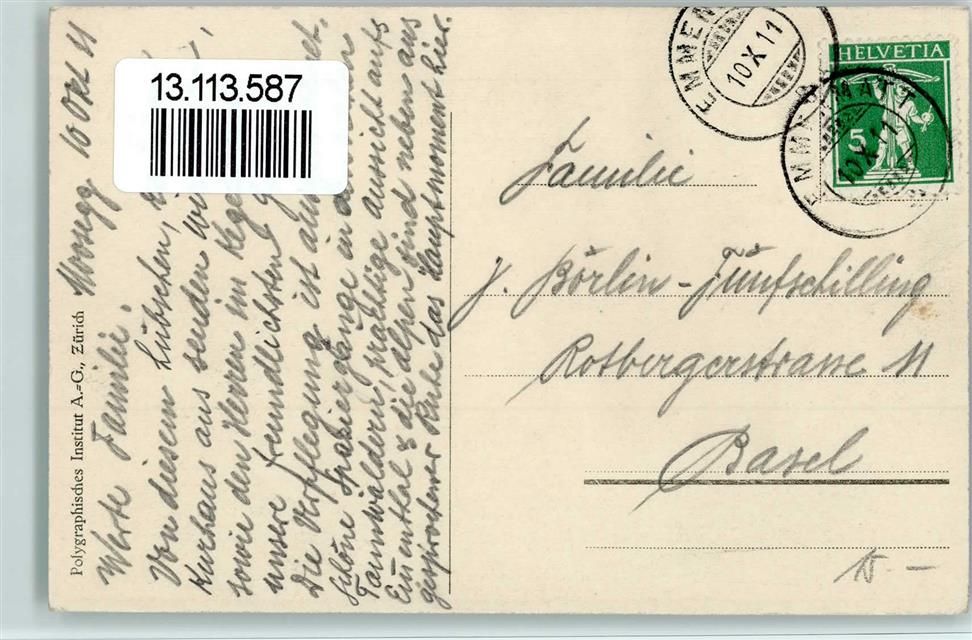 Moosegg 10 Okt 11
Werte Familie!
Von diesem hübschen,
Kurhaus aus senden wir
sowie den Herren im
unsere freundlichsten
Die Verpflegung ist
Schöne Spaziergänge in
Tannwäldern, prachtige aussicht aufs
Emmental & die Alpen sind nebens aus
gesprochener Ruhe das Hauptmoment hier.
Polygraphisches Institut A.-G., Zürich
13.113.587
EMMEN
10 X 11
HELVETIA
5
EMMENMATT
10 X 11
Familie
J. Börlin-Jünfschilling
Rotbergerstrasse 11
Basel